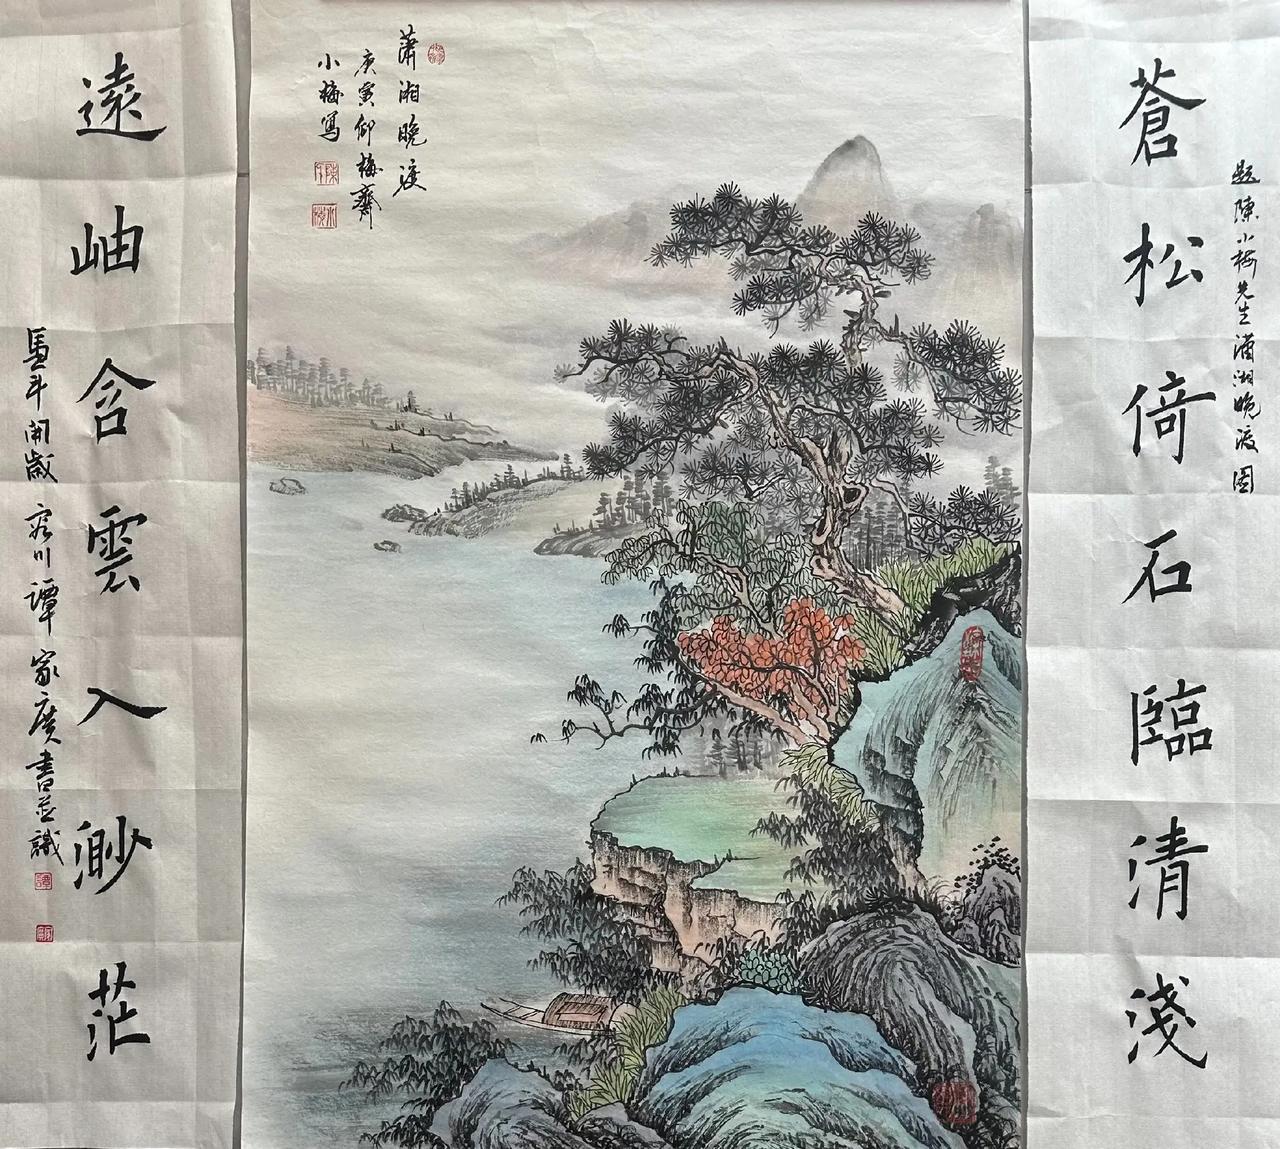 題陳小梅先生瀟湘晚渡圖
蒼松倚石臨清淺
蕭湘晚渡
庚寅仰梅齋
小梅寫
遠岫含雲入渺茫
開歲 容川譚家廣書並識